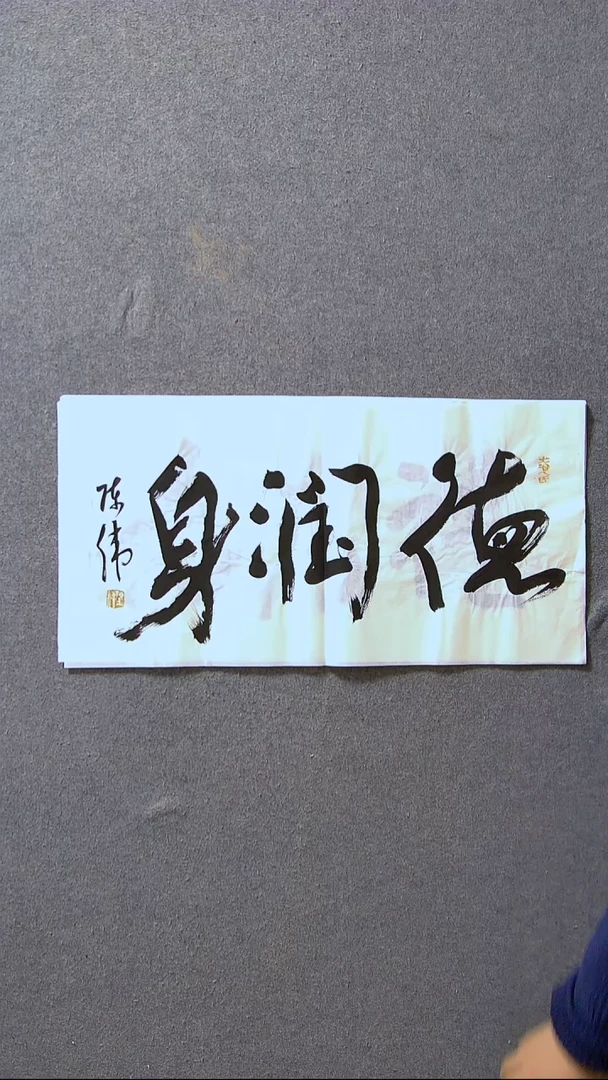 德润身
陈伟